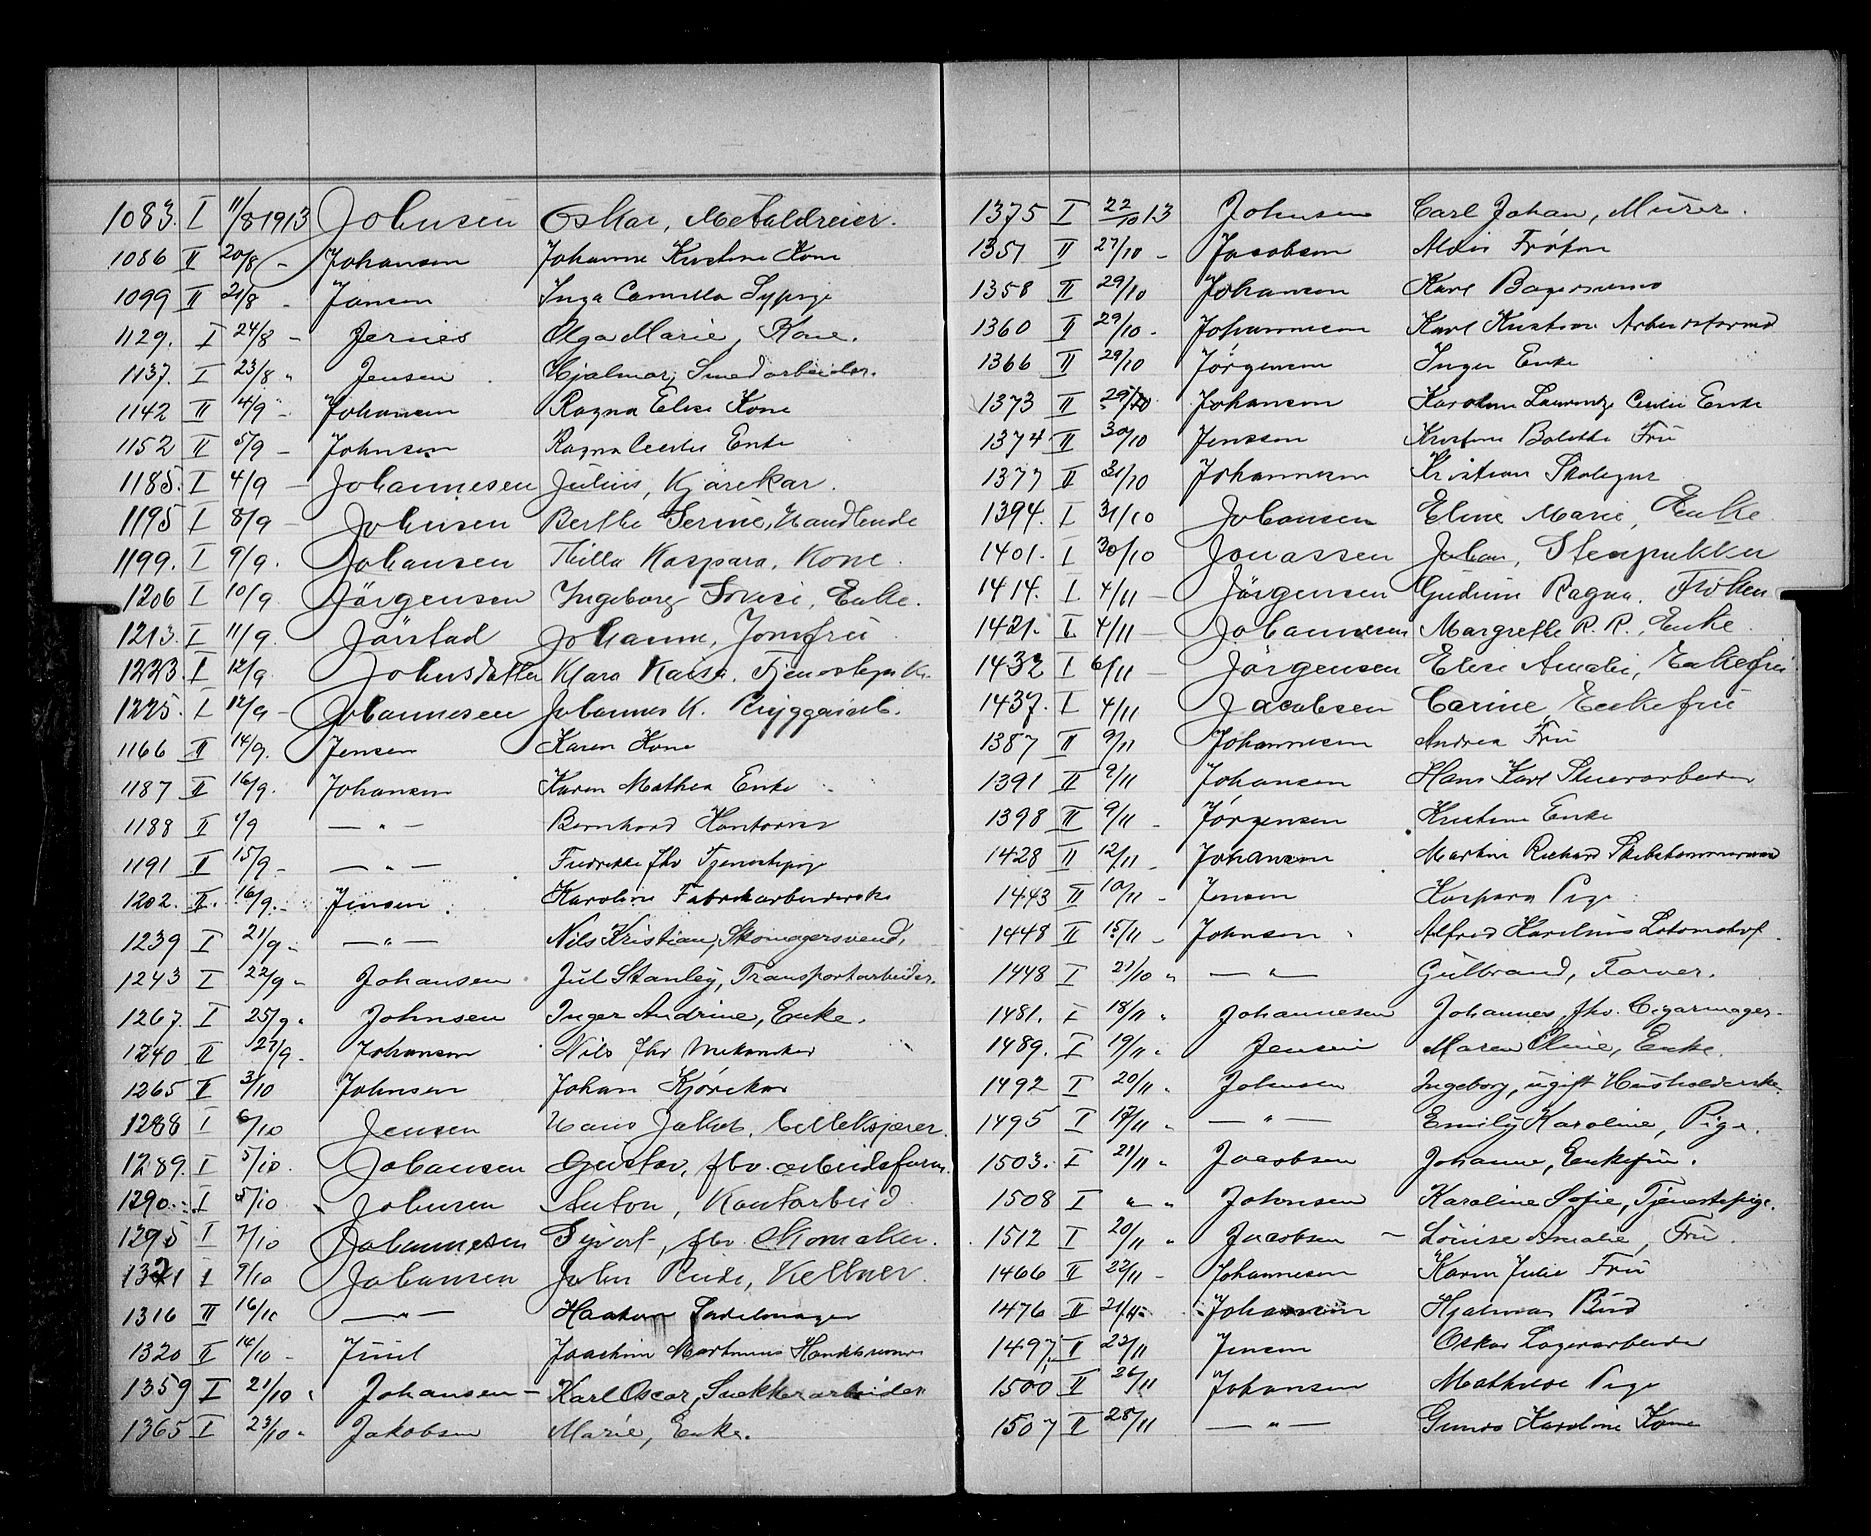 1083. I 11/8 1913 Johnsen Oskar, Metaldreier.
1086 II 20/8 - Johansen Johanne Kristine Kone
1099 II 21/8 - Jansen Inga Camilla Sypige
1129. I 24/8 - Jernes Olga Marie, Kone.
1137. I 23/8 " Jensen Hjalmar, Smedarbeider.
1142 II 4/9 - Johansen Ragna Elise Kone
1152 II 5/9 - Johnsen Ragna Cecilie Enke
1185. I 4/9 - Johannesen Julius, Kjørekar.
1195 I 8/9 - Johnsen Berthe Serine, Handlende
1199. I 9/9. Johansen Thilla Kaspara, Kone.
1206 I 10/9. Jörgensen Ingeborg Lovise, Enke.
1213. I 11/9. Jörstad Johanne, Jomfru
1223. I 12/9. Johnsdatter Klara Kaisa, Tjenestepik.
1225. I 12/9 - Johannesen Johannes K. Bryggearb.
1166 II 14/9. Jensen Karen Kone
1187 II 16/9. Johansen Karen Mathea Enke
1188 II 9/9 — " — Bernhard Kontorist
1191 II 15/9 - — " — Fredrikke fhv Tjenestepige
1202. II. 16/9. - Jensen Karoline Fabrikarbeiderske
1239 I 21/9 - — " — Nils Kristian, Skomagersvend.
1243 I 22/9 " Johansen Jul Stanley, Transportarbeider.
1267. I 25/9 " Johnsen Inger Andrine, Enke.
1240 II 27/9 - Johansen Nils fhv Mekaniker
1265 II 3/10 Johnsen Johan Kjørekar
1288 I 6/10 Jensen Hans Jakob,
1289. I 5/10. Johansen Gustav, fhv. arbeidsform.
1290. I 5/10 Johnsen Anton, Kontorbud
1295 I 7/10 Johannesen Sivert, fhv. Skomaker.
1321 I 9/10 Johansen John Rude, Kellner.
1316 II 16/10 — " — Haakon Sadelmager
1320 II 14/10 - Juul Joachim Martinius
1359 I 21/10 " Johansen - Karl Oscar, Snekkerarbeider
1365 I 23/10 " Jakobsen Marie, Enke.
1375 I 22/10 13 Johnsen Carl Johan, Murer.
1357 II 27/10 - Jacobsen Frøken
1358 II 29/10 Johansen Karl Bagersvend
1360 II 29/10 - Johannesen Karl Kristian Arbeidsformd
1366 II 29/10 Jørgensen Inger Enke
1373 II 29/10 Johansen Karoline Laurentze Cecilie Enke
1374 II 30/10 Jenssen Kristine Bolette Fru
1377 II 31/10 Johannesen Kristian
1394. I 31/10 Johansen Eline Marie, Enke.
1401. I 30/10 Jonassen Johan, Stenpukker
1414. I. 4/11 - Jörgensen Gudrun Ragna. Frøken
1421. I. 4/11 - Johannesen Margrethe R. R., Enke.
1432 I 6/11 - Jörgensen Elise Amalie, Enkefru
1437. I. 4/11 Jacobsen Carine Enkefru
1387 II 9/11 Johannesen Andrea Fru
1391 II 9/11 Johansen Hans Karl
1398 II 9/11 - Jørgensen Kristine Enke
1428 II 12/11 - Johansen Martin Richard Skibstømmermand
1443 II 10/11 - Jensen Kaspara Pige
1448 II 15/11 - Johnsen Alfred Karelius
1448 I 21/10 " — " — Gulbrand, Farver.
1481. I 18/11 " Johannesen Johannes, fhv. Cigarmager.
1489. I 19/11 " Jensen Maren Oline, Enke.
1492 I 20/11 " Johnsen Ingeborg, ugift Husholderske
1495 I 17/11 " — " — Emily Karoline, Pige.
1503. I 21/11 " Jacobsen Johanne, Enkefru.
1508 I " " Johnsen Karoline Sofie, Tjenestepige.
1512 I 20/11 " Jacobsen - Louise Amalie, Fru.
1466 II 22/11 - Johannesen Karen Julie Fru
1476 II 21/11 - Johannesen Hjalmar Bud
1497. II 23/11 Jensen Oskar Lagerarbeider
1500 II 26/11 Johansen Mathilde Pige
1507 II 28/11 — " — Gunda Karoline Kone